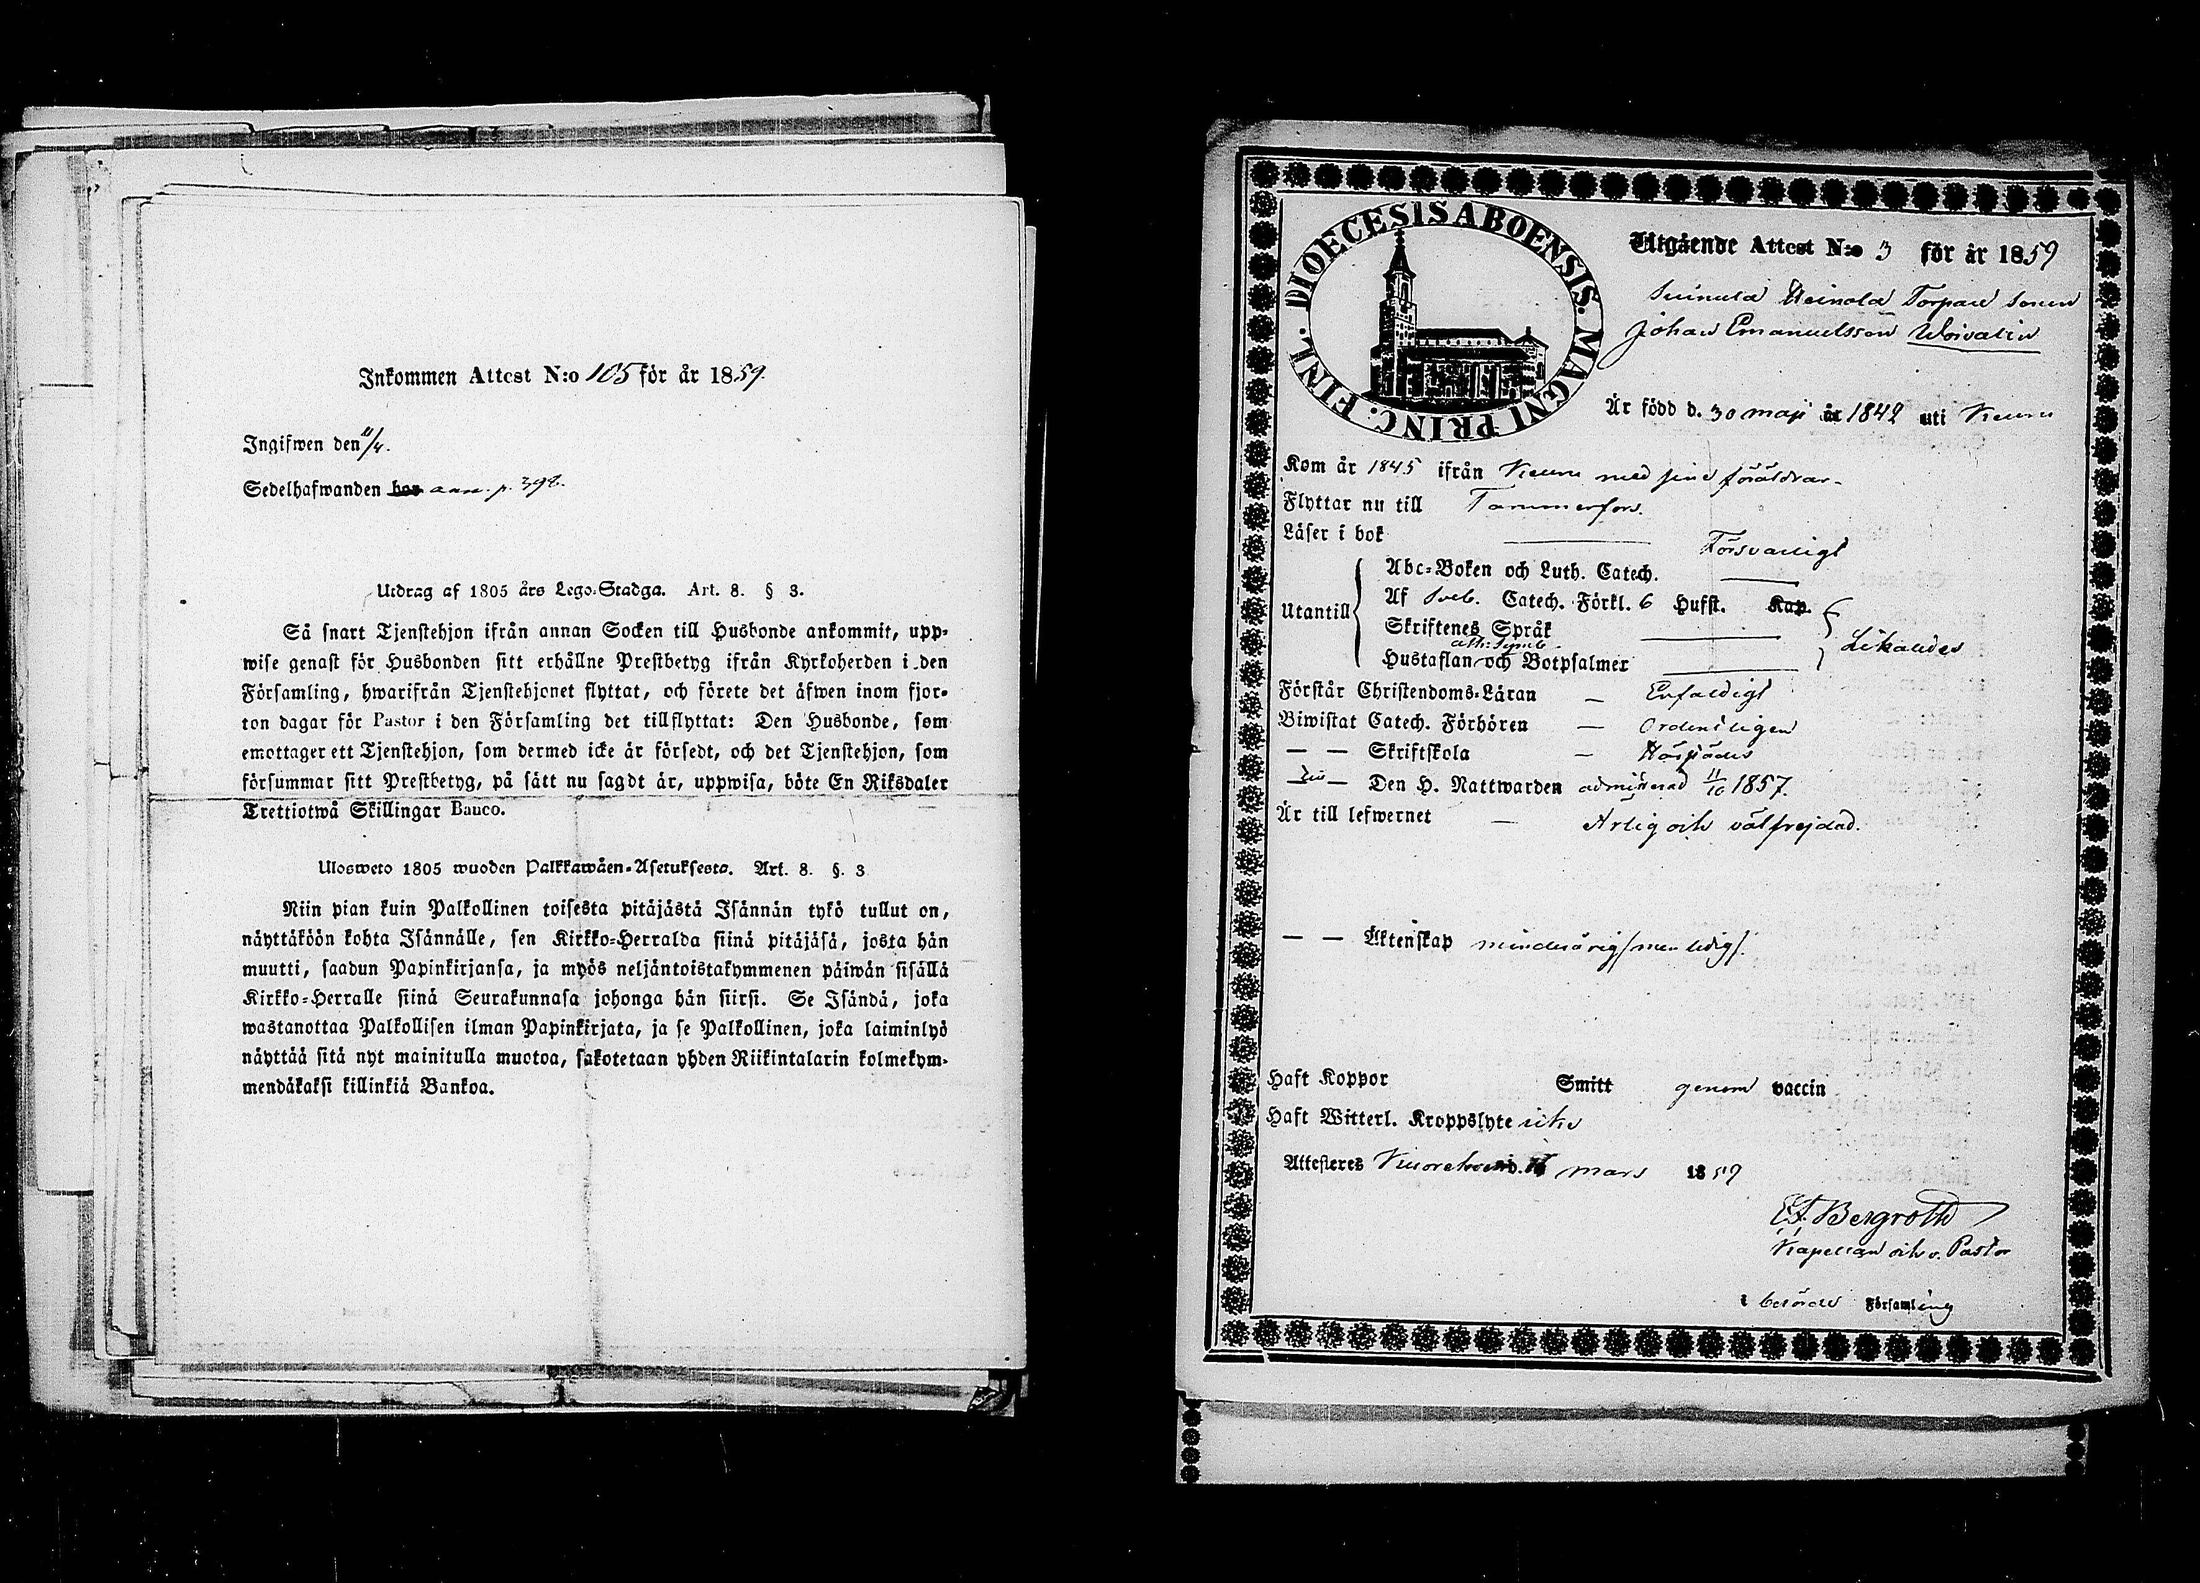 Inkommen Attest N:o 105 för år 1859.
Ingifwen den 11/4.
Sedelhafwanden bor ann. p. 398.
Utdrag af 1805 års Lego-Stadga. Art. 8. § 3.
Så snart Tjenstehjon ifrån annan Socken till Husbonde ankommit, upp-
wise genast för Husbonden sitt erhållne Prestbetyg ifrån Kyrkoherden i den
Församling, hwarifrån Tjenstehjonet flyttat, och förete det äfwen inom fjor-
ton dagar för Pastor i den Församling det tillflyttat: Den Husbonde, som
emottager ett Tjenstehjon, som dermed icke är försedt, och det Tjenstehjon, som
försummar sitt Prestbetyg, på sätt nu sagdt är, uppwisa, böte En Riksdaler
Trettiotwå Skillingar Banco.
Ulosweto 1805 wuoden Palkkawäen-Asetuksesta. Art. 8. §. 3
Niin pian kuin Palkollinen toisesta pitäjästä Isännän tykö tullut on,
näyttäköön kohta Isännälle, sen Kirkko-Herralda siinä pitäjäsä, josta hän
muutti, saadun Papinkirjansa, ja myös neljäntoistakymmenen päiwän sisällä
Kirkko-Herralle siinä Seurakunnasa johonga hän siirsi. Se Isändä, joka
wastanottaa Palkollisen ilman Papinkirjata, ja se Palkollinen, joka laiminlyö
näyttää sitä nyt mainitulla muotoa, sakotetaan yhden Riikintalarin kolmekym-
mendäkaksi killinkiä Bankoa.
DIOECESIS ABOENSIS. MAGNI PRINC. FINL.
Utgående Attest N:o 3 för år 1859
Suinula Heinola Torpare sonen
Johan Emanuelsson Woivalin
Är född d. 30 maji år 1842 uti Keuru
Kom år 1845 ifrån Keuru med sina föräldrar.
Flyttar nu till Tammerfors.
Läser i bok Försvarligt
Abc-Boken och Luth. Catech.
Utantill Af Sveb. Catech. Förkl. 6 Hufst. Kap.
Skriftenes Språk Likaledes
ath: Symb.
Hustaflan och Botpsalmer
Förstår Christendoms-Läran — Enfaldigt
Biwistat Catech. Förhören — Ordentligen
— — Skriftskola —
— Den H. Nattwarden admitterad 11/10 1857.
Är till lefwernet — Ärlig och välfrejdad.
— — Äktenskap minderårig/men ledig/.
Haft Koppor Smitt genom vaccin
Haft Witterl. Kroppslyte icke
Attesteras Kuorehvesi d. mars 1859
E.F. Bergroth
Kapellan och v. Pastor
i berörde Församling